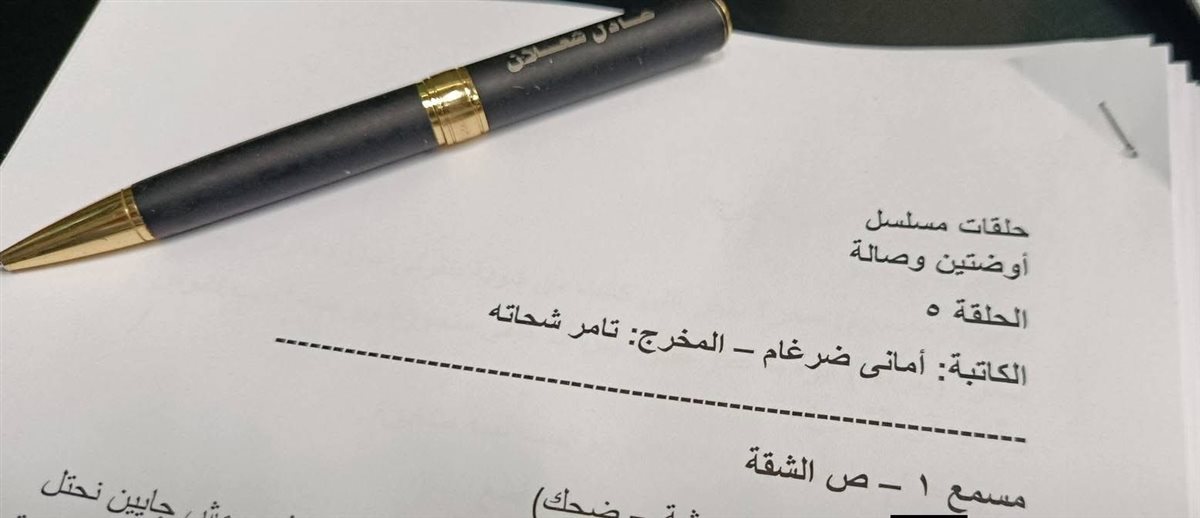 عادل شعلان
حلقات مسلسل
أوضتين وصالة
الحلقة ٥
الكاتبة: أمانى ضرغام – المخرج: تامر شحاته
مسمع ١ – ص الشقة
– ضحك)
جايين نحتل